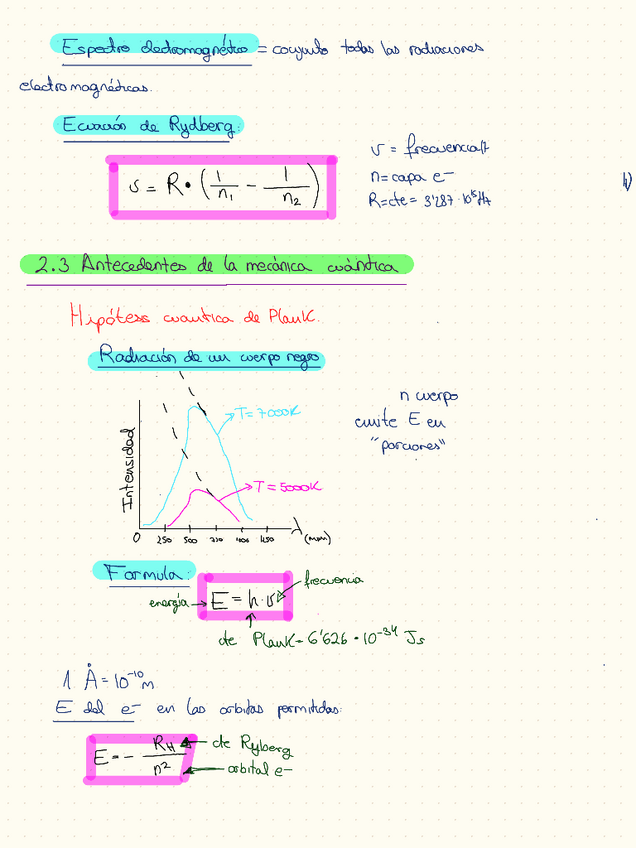 Espectro electromagnético = conjunto todas las radiaciones
electromagnéticas.
Ecuación de Rydberg:
ν = R • (1/n₁ - 1/n₂)
ν = frecuencia
n = capa e-
R = cte = 3'287 · 10¹⁵ Hz
2.3 Antecedentes de la mecánica cuántica
Hipótess cuantica de Plank.
Radiación de un cuerpo negro
n cuerpo
emite E en
"porciones"
Intensidad
T = 7000K
T = 5000K
0 250 500
λ
Formula:
energía → E = h · ν ← frecuencia
cte Plank = 6'626 · 10⁻³⁴ Js
1 Å = 10⁻¹⁰ m
E del e- en las orbitas permitidas:
E = - R_H / n²
cte Ryberg
orbital e-